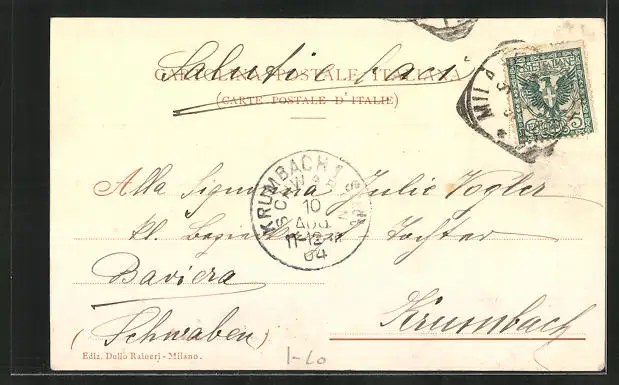 Saluti e baci
CARTOLINA POSTALE ITALIANA
(CARTE POSTALE D'ITALIE)
MILA
KRUMBACH 1
SCHWABEN
10
AUG.
11-12
04
Alla Signorina Julie Vogler
kl. Tochter
Baviera
(Schwaben)
Krumbach
Ediz. Dulio Rainerj - Milano.
1-60